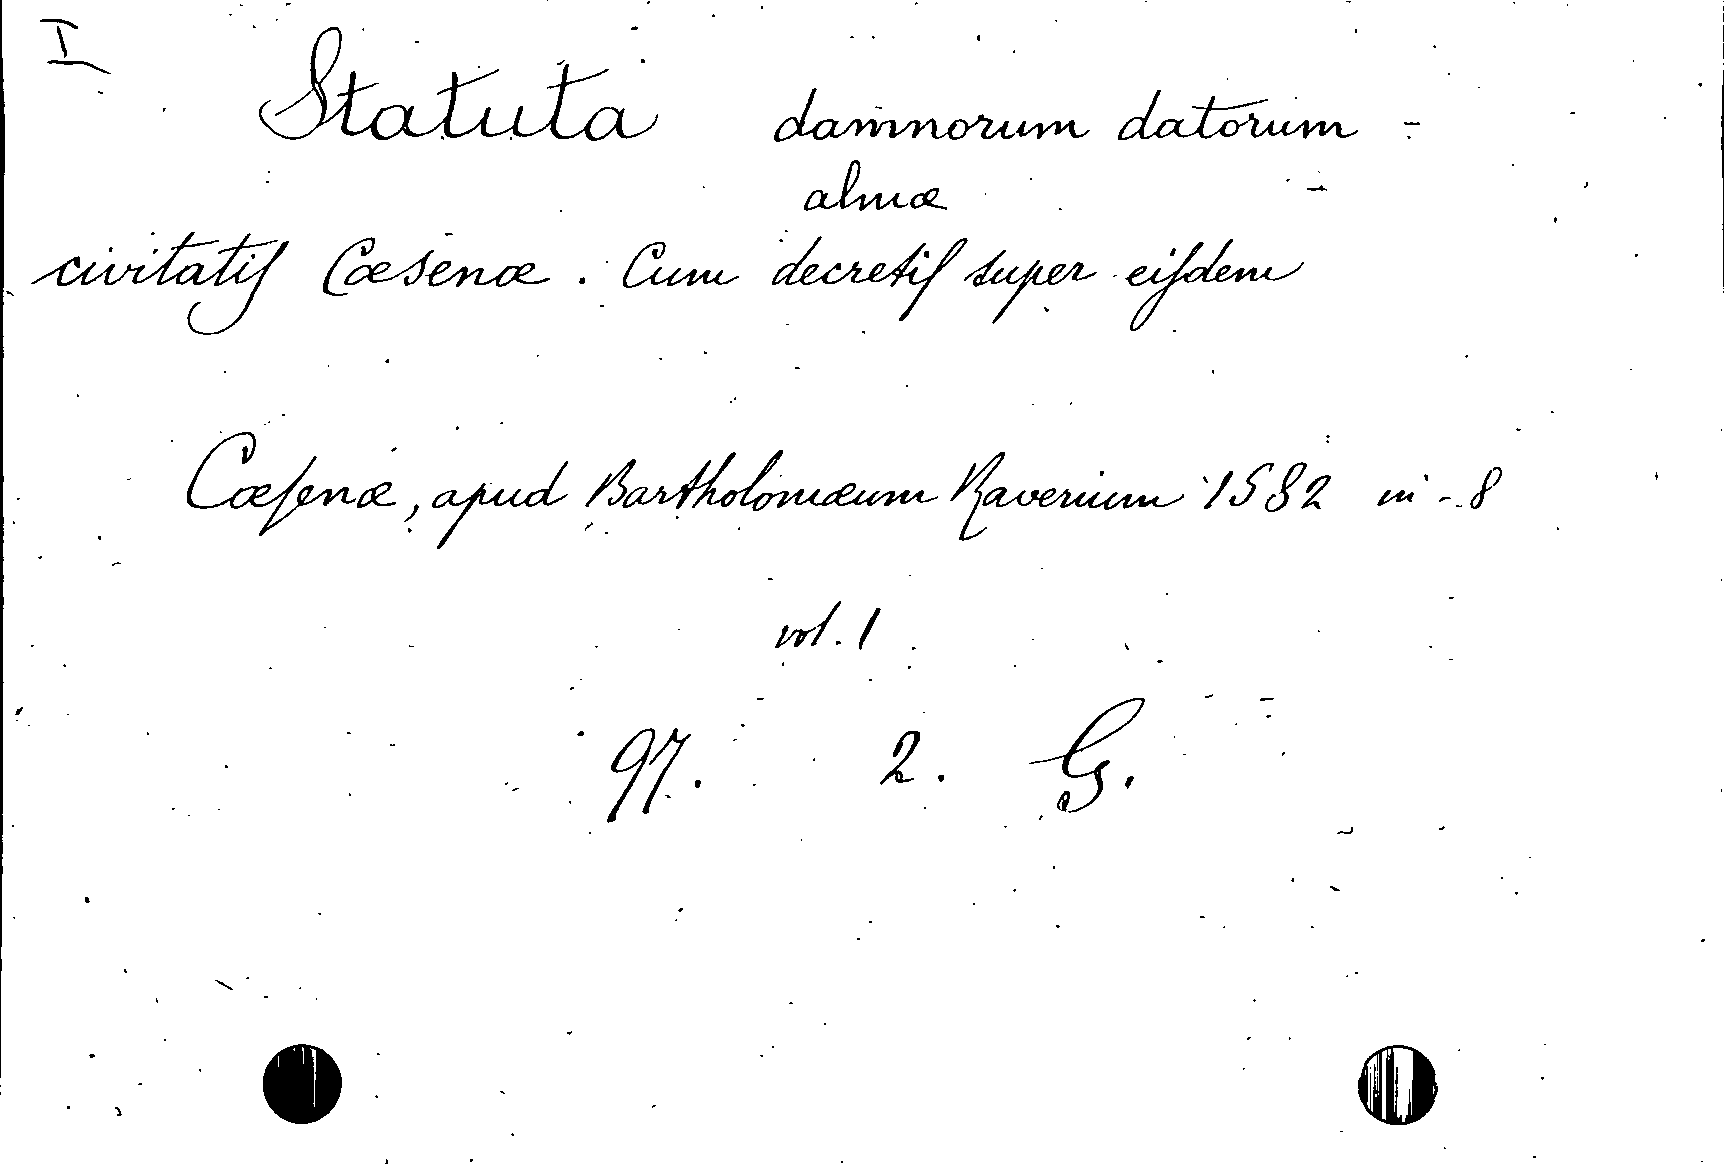 I
Statuta damnorum datorum
almæ
civitatiſ Cæsenæ. Cum decretiſ super eiſdem
Cæſenæ, apud Bartholomæum Raverium 1582 in-8
vol. 1
97. 2. G.